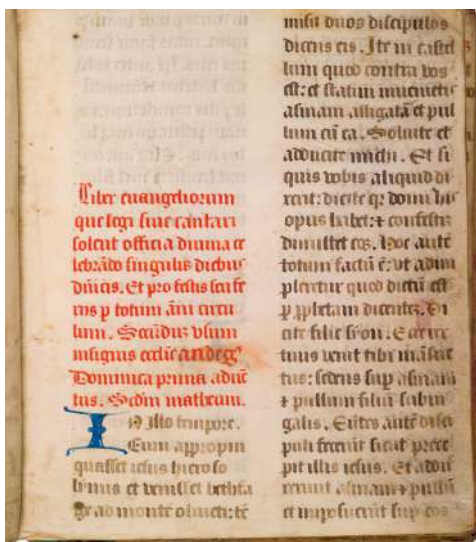 Liber euangeliorum
que legi siue cantari
solent officia diuina ce
lebrādo singulis diebus
dn̄icis. Et pro festis seu fe
rijs ꝑ totum ān̄i circu
lum. Secūdū vsum
insignis ecclīe andegͣ
Dominica prima aduē
tus. Scdm̄ matheum.
IN illo tempore.
Cum appropin
quasset iesus hieroso
limis et venisset bethfa
ge ad montē oliueti: tc̄
misit duos discipulos
dicens eis. Ite in castel
lum quod contra vos
est: et statim inuenietis
asinam alligatā et pul
lum cū ea. Soluite et
adducite michi. Et si
quis vobis aliquid di
xerit: dicite qꝛ dom̄ hijs
opus habet: ⁊ confestī
dimittet eos. Hoc autē
totum factū ē: vt adim
pleretur quod dictū est
ꝑ ꝓphetam dicentē. Di
cite filie syon. Ecce rex
tuus venit tibi māsue
tus: sedens sup̄ asinam
⁊ pullum filiū subiu
galis. Eūtes autē disci
puli fecerūt sicut prece
pit illis iesus. Et addu
xerunt asinam ⁊ pullū
et imposuerūt sup̄ eos